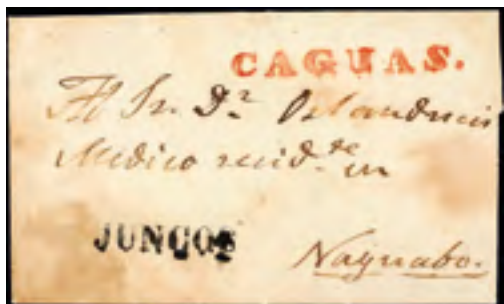 CAGUAS.
Al Sr. Dr.
Medico resid.te en
JUNCOS
Naguabo.